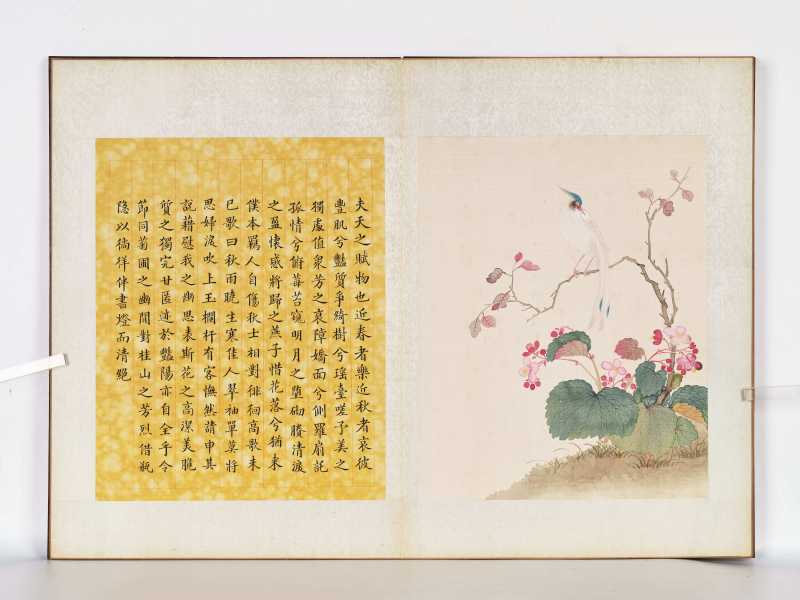 夫天之賦物也近春者樂近秋者哀彼
豐肌兮豔質爭綺樹兮瑤臺嗟予美之
獨處值衆芳之哀障嬌面兮側羅扇託
孤情兮俯莓苔窺明月之墮砌賸清淚
之盈懷感將歸之燕子惜花落兮猶來
僕本羈人自傷秋士相對徘徊高歌未
已歌曰秋雨曉生寒佳人翠袖單莫將
思婦淚吹上玉欄杆有客憮然請申其
說藉慰我之幽思表斯花之高潔美脆
質之獨完甘匿迹於豔陽亦自全乎令
節同菊圃之幽閒對桂山之芳烈借瓶
隱以徜徉伴書燈而清絕